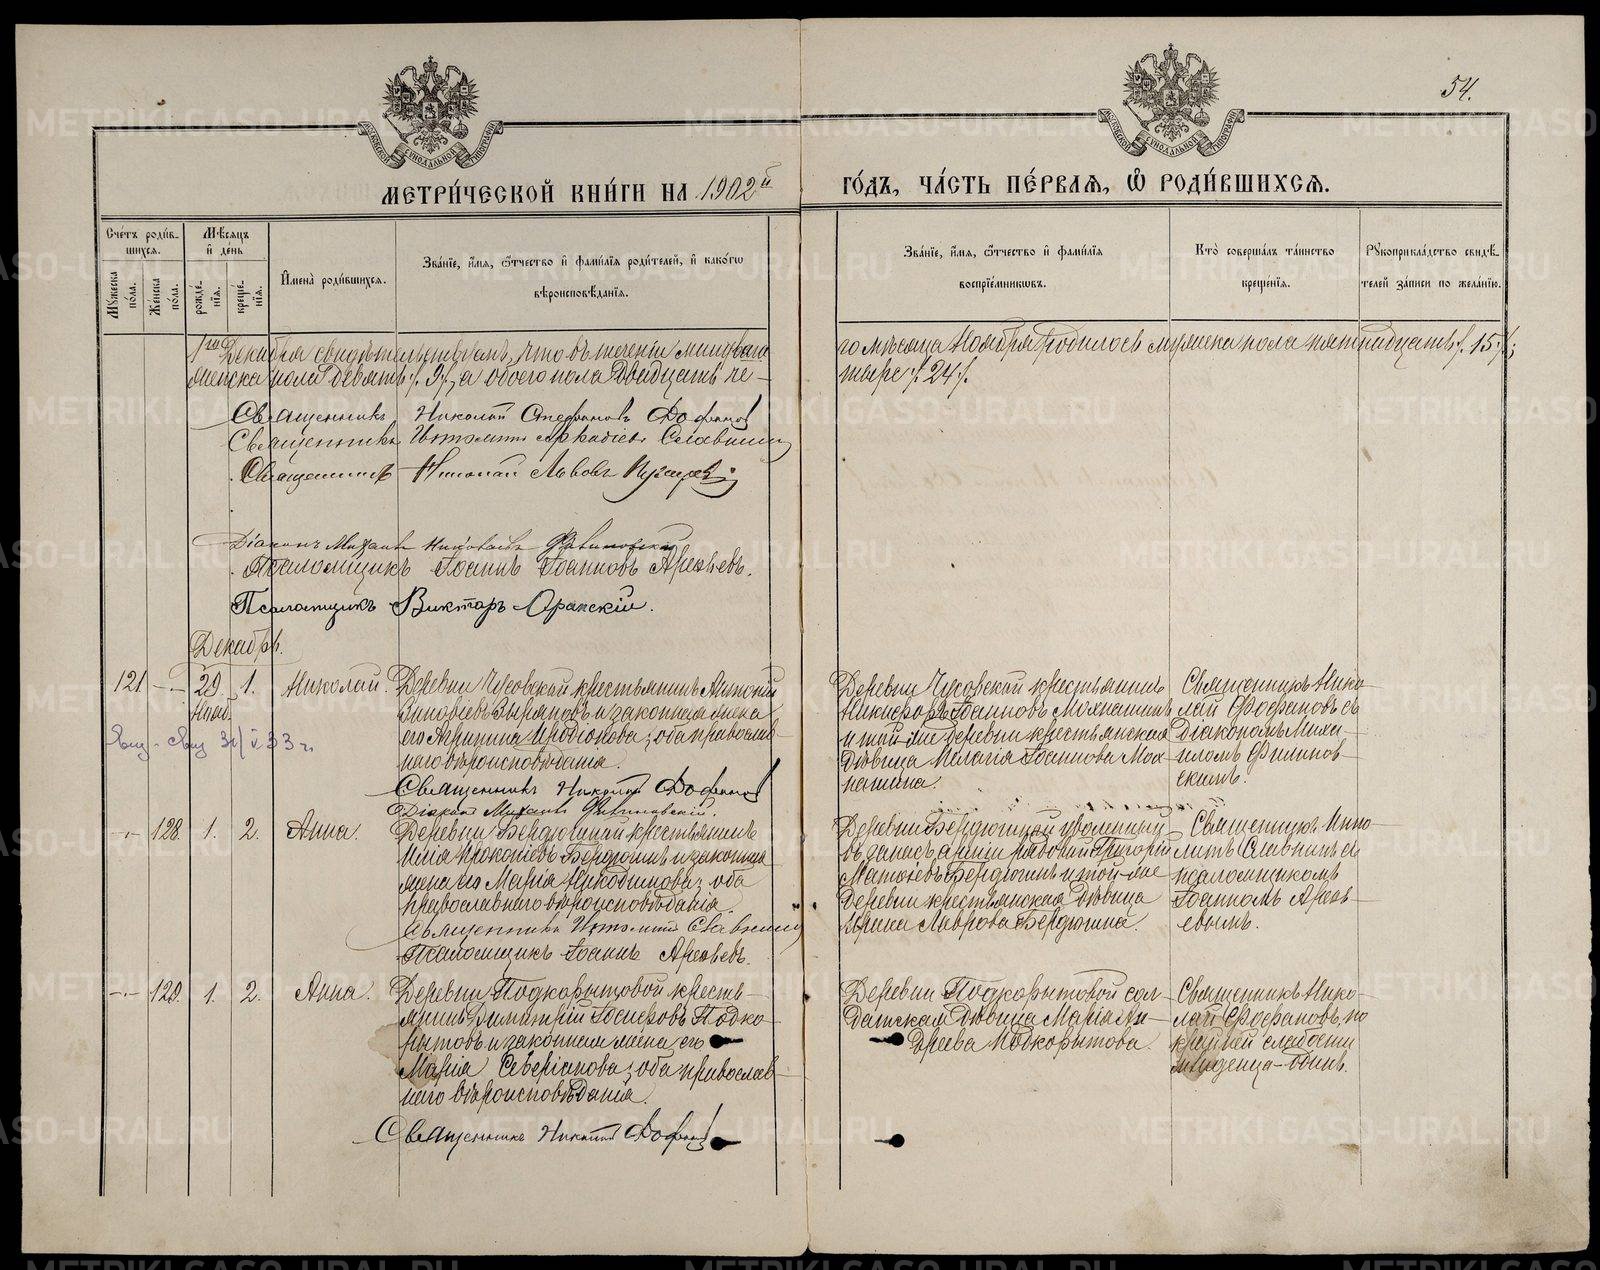 54.
МЕТРИ́ЧЕСКОЙ КНИ́ГИ НА 1902й ГО́ДЪ, ЧА́СТЬ ПЕ́РВАѦ, Ѡ҆ РОДИ́ВШИХСѦ.
Сче́тъ роди́в-
шихсѧ.
Мѣ́сѧцъ
и҆ де́нь
Мꙋжеска по́ла.
Же́нска по́ла.
рожде́-
нїѧ.
креще́-
нїѧ.
И҆мена̀ роди́вшихсѧ.
Зва́нїе, и҆́мѧ, ѻ҆́тчество и҆ фами́лїѧ роди́телей, и҆ како́гѡ
вѣроисповѣ́данїѧ.
Зва́нїе, и҆́мѧ, ѻ҆́тчество и҆ фами́лїѧ
воспрїе́мниковъ.
Кто̀ соверша́лъ та́инство
креще́нїѧ.
Рꙋкоприкла́дство свидѣ́-
телей за́писи по жела́нїю.
1го Декабря свидѣтельствуемъ, что въ теченіи минувша
го мѣсяца Ноября родилось мужеска пола пятнадцать /. 15 /.;
женска пола девять /. 9 /., а обоего пола двадцать че-
тыре /. 24 /.
Священникъ Николай Стефановъ Фофановъ
Священникъ Ипполитъ Аркадіевъ Славнинъ
Священникъ Николай Львовъ
Діаконъ Михаилъ Филиновскій
Псаломщикъ Іоаннъ Іоанновъ Арефьевъ.
Псаломщикъ Викторъ Оранскій.
Декабрь.
121 —„— 29. Нояб. 1. Николай.
Деревни Чусовской крестьянинъ Антоній
Зиновіевъ Зыряновъ и законная жена
его Агрипина Иродіонова, оба православ-
наго вѣроисповѣданія.
Священникъ Николай Фофановъ
Діаконъ Михаилъ Филиновскій.
Деревни Чусовской крестьянинъ
Никифоръ Іоанновъ Мохнашинъ
и той-же деревни крестьянская
дѣвица Мелагія Іоаннова Мох-
нашина.
Священникъ Нико-
лай Фофановъ съ
Діакономъ Миха-
иломъ Филинов-
скимъ.
—„— 128. 1. 2. Анна.
Деревни Бердюгиной крестьянинъ
Илія Прокопіевъ Бердюгинъ и законная
жена его Марія Никодимова, оба
православнаго вѣроисповѣданія.
Священникъ Ипполитъ Славнинъ
Псаломщикъ Іоаннъ Арефьевъ.
Деревни Бердюгиной уволенный
въ запасъ арміи рядовой Григорій
Матѳеевъ Бердюгинъ и той-же
деревни крестьянская дѣвица
Ирина Лаврова Бердюгина.
Священникъ Иппо-
литъ Славнинъ съ
псаломщикомъ
Іоанномъ Арефь-
евымъ.
—„— 129. 1. 2. Анна.
Деревни Подкорытовой кресть-
янинъ Димитрій Іосифовъ Подко-
рытовъ и законная жена его
Марія Северіанова, оба православ-
наго вѣроисповѣданія.
Священникъ Николай Фофановъ
Деревни Подкорытовой сол-
датская дѣвица Марія Ан-
дреева Подкорытова.
Священникъ Нико-
лай Фофановъ, по
крайней слабости
младенца – одинъ.
METRIKI.GASO-URAL.RU